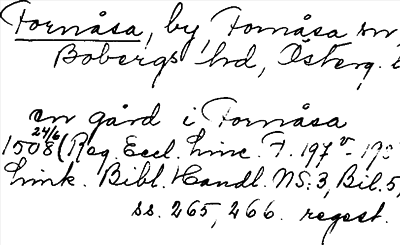 Fornåsa, by, Fornåsa sn,
Bobergs hd, Österg.
en gård i Fornåsa
24/6
1508 (Reg. Eccl. Linc. F. 197 v -
Link. Bibl. Handl. NS: 3, Bil. 5,
ss. 265, 266. regest.